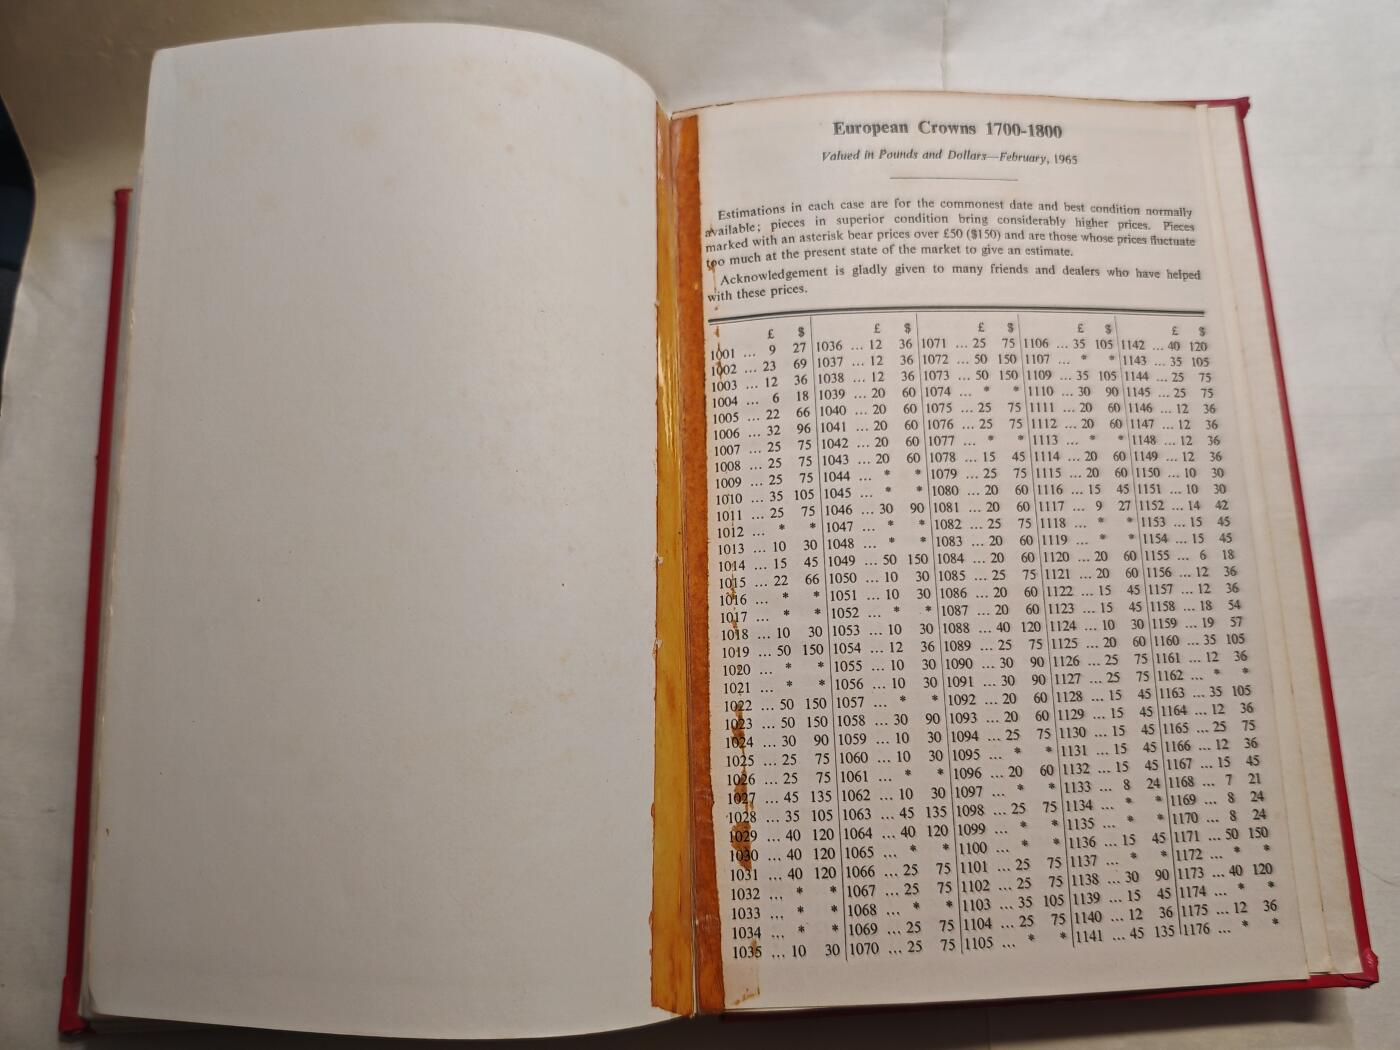 European Crowns 1700-1800
Valued in Pounds and Dollars—February, 1965
Estimations in each case are for the commonest date and best condition normally
available; pieces in superior condition bring considerably higher prices. Pieces
marked with an asterisk bear prices over £50 ($150) and are those whose prices fluctuate
too much at the present state of the market to give an estimate.
Acknowledgement is gladly given to many friends and dealers who have helped
with these prices.
£ $
1001 ... 9 27
1002 ... 23 69
1003 ... 12 36
1004 ... 6 18
1005 ... 22 66
1006 ... 32 96
1007 ... 25 75
1008 ... 25 75
1009 ... 25 75
1010 ... 35 105
1011 ... 25 75
1012 ... * *
1013 ... 10 30
1014 ... 15 45
1015 ... 22 66
1016 ... * *
1017 ... * *
1018 ... 10 30
1019 ... 50 150
1020 ... * *
1021 ... * *
1022 ... 50 150
1023 ... 50 150
1024 ... 30 90
1025 ... 25 75
1026 ... 25 75
1027 ... 45 135
1028 ... 35 105
1029 ... 40 120
1030 ... 40 120
1031 ... 40 120
1032 ... * *
1033 ... * *
1034 ... * *
1035 ... 10 30
£ $
1036 ... 12 36
1037 ... 12 36
1038 ... 12 36
1039 ... 20 60
1040 ... 20 60
1041 ... 20 60
1042 ... 20 60
1043 ... 20 60
1044 ... * *
1045 ... * *
1046 ... 30 90
1047 ... * *
1048 ... * *
1049 ... 50 150
1050 ... 10 30
1051 ... 10 30
1052 ... * *
1053 ... 10 30
1054 ... 12 36
1055 ... 10 30
1056 ... 10 30
1057 ... * *
1058 ... 30 90
1059 ... 10 30
1060 ... 10 30
1061 ... * *
1062 ... 10 30
1063 ... 45 135
1064 ... 40 120
1065 ... * *
1066 ... 25 75
1067 ... 25 75
1068 ... * *
1069 ... 25 75
1070 ... 25 75
£ $
1071 ... 25 75
1072 ... 50 150
1073 ... 50 150
1074 ... * *
1075 ... 25 75
1076 ... 25 75
1077 ... * *
1078 ... 15 45
1079 ... 25 75
1080 ... 20 60
1081 ... 20 60
1082 ... 25 75
1083 ... 20 60
1084 ... 20 60
1085 ... 25 75
1086 ... 20 60
1087 ... 20 60
1088 ... 40 120
1089 ... 25 75
1090 ... 30 90
1091 ... 30 90
1092 ... 20 60
1093 ... 20 60
1094 ... 25 75
1095 ... * *
1096 ... 20 60
1097 ... * *
1098 ... 25 75
1099 ... * *
1100 ... * *
1101 ... 25 75
1102 ... 25 75
1103 ... 35 105
1104 ... 25 75
1105 ... * *
£ $
1106 ... 35 105
1107 ... * *
1109 ... 35 105
1110 ... 30 90
1111 ... 20 60
1112 ... 20 60
1113 ... * *
1114 ... 20 60
1115 ... 20 60
1116 ... 15 45
1117 ... 9 27
1118 ... * *
1119 ... * *
1120 ... 20 60
1121 ... 20 60
1122 ... 15 45
1123 ... 15 45
1124 ... 10 30
1125 ... 20 60
1126 ... 25 75
1127 ... 25 75
1128 ... 15 45
1129 ... 15 45
1130 ... 15 45
1131 ... 15 45
1132 ... 15 45
1133 ... 8 24
1134 ... * *
1135 ... * *
1136 ... 15 45
1137 ... * *
1138 ... 30 90
1139 ... 15 45
1140 ... 12 36
1141 ... 45 135
£ $
1142 ... 40 120
1143 ... 35 105
1144 ... 25 75
1145 ... 25 75
1146 ... 12 36
1147 ... 12 36
1148 ... 12 36
1149 ... 12 36
1150 ... 10 30
1151 ... 10 30
1152 ... 14 42
1153 ... 15 45
1154 ... 15 45
1155 ... 6 18
1156 ... 12 36
1157 ... 12 36
1158 ... 18 54
1159 ... 19 57
1160 ... 35 105
1161 ... 12 36
1162 ... * *
1163 ... 35 105
1164 ... 12 36
1165 ... 25 75
1166 ... 12 36
1167 ... 15 45
1168 ... 7 21
1169 ... 8 24
1170 ... 8 24
1171 ... 50 150
1172 ... * *
1173 ... 40 120
1174 ... * *
1175 ... 12 36
1176 ... * *